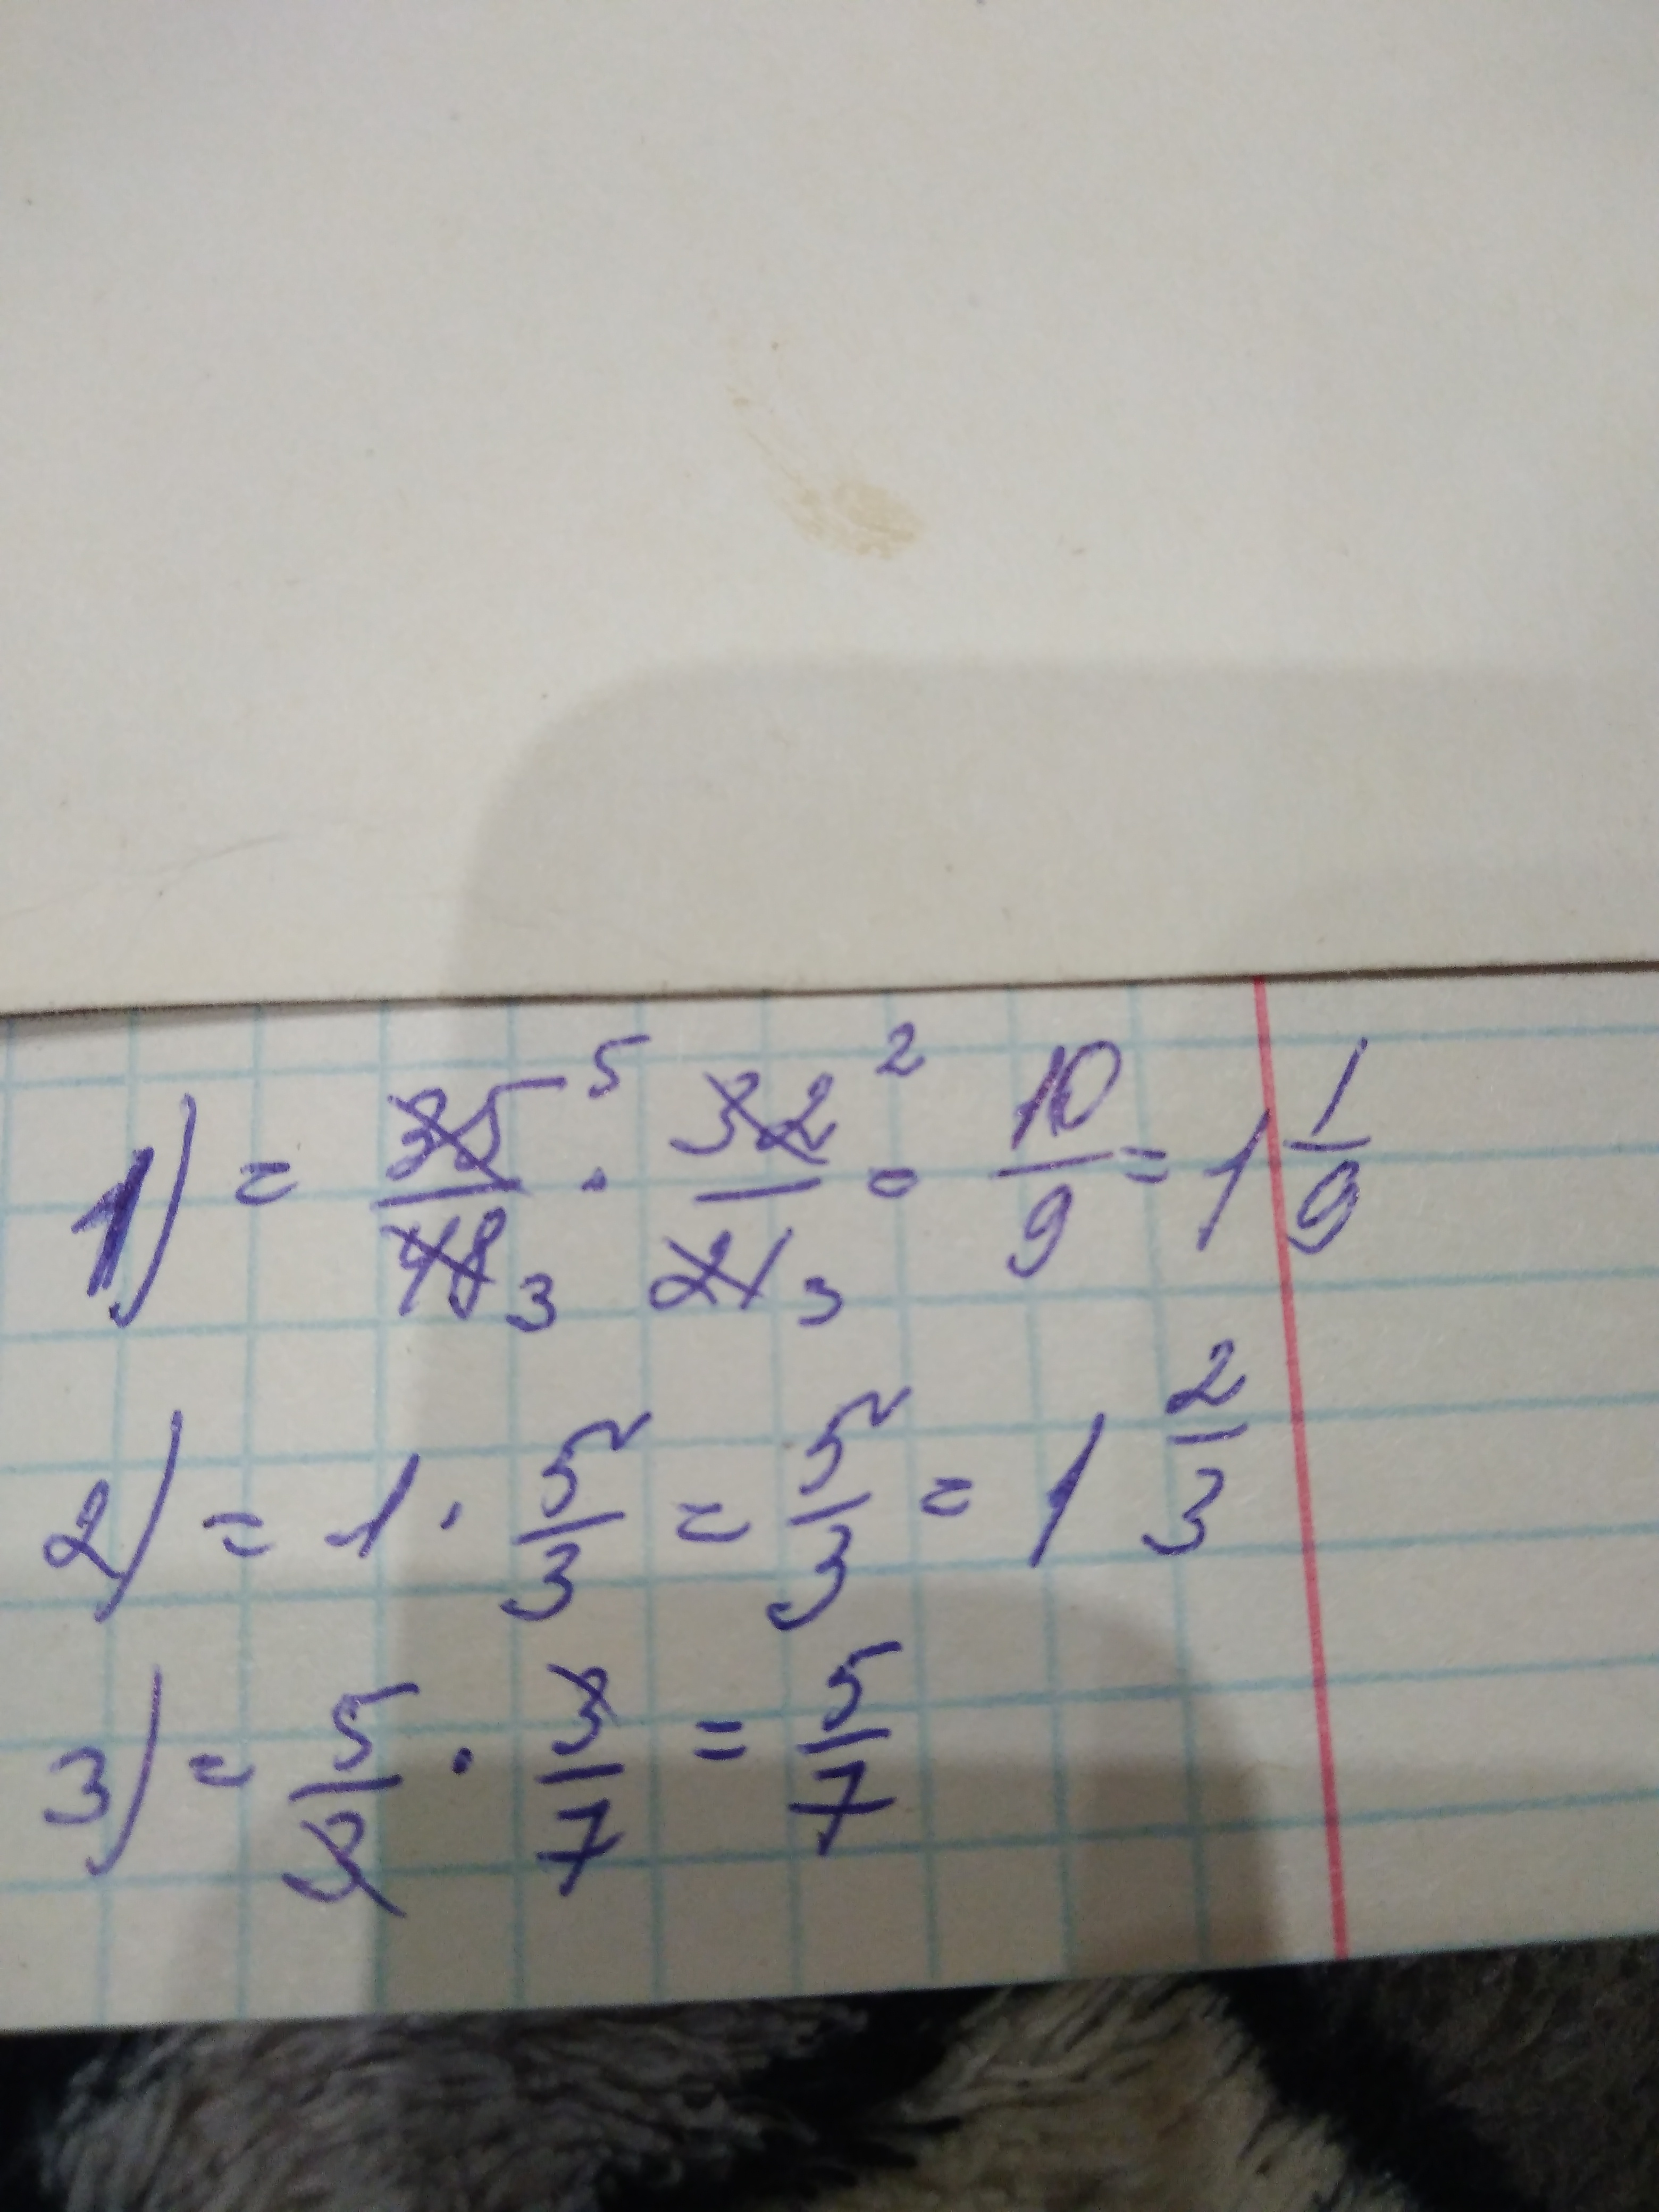 1) = 35/48 5/3 · 32/21 2/3 = 10/9 = 1 1/9
2) = 1 · 5/3 = 5/3 = 1 2/3
3) = 5/3 · 3/7 = 5/7